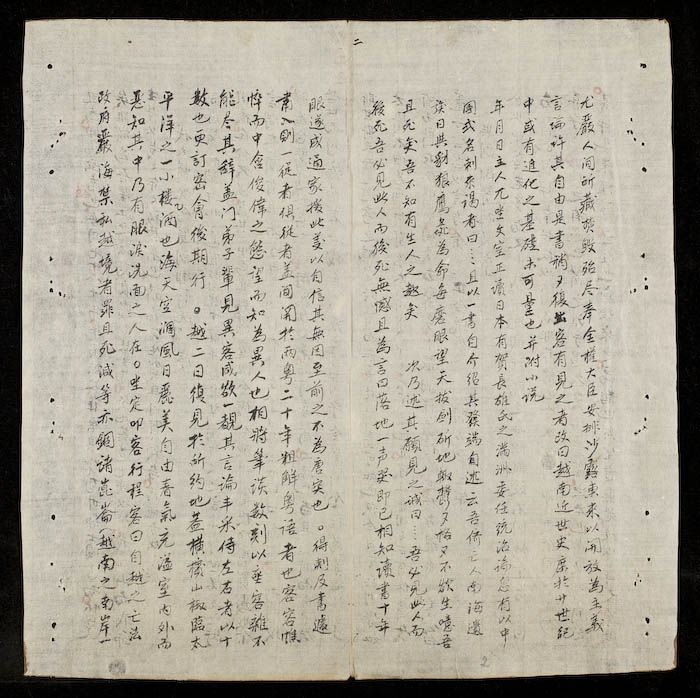 二
尤嚴人間所藏焚毀殆尽辛全權大臣安排沙露東來以開放為主義
言論許其自由是書補夕後出客有見之者改曰越南近世史庶於廿世紀
中或有進化之基礎未可量也并附小說
年月日主人兀坐文室正讀日本有賀長雄氏之滿洲委任統治論忽有以中
國式名刺來謁者曰…且以一書自介紹其發端自述云吾儕亡人南海遺
族日與豺狼鷹彘為命每磨眼望天拔劍斫地輒鬱夕格夕不欲生噫吾
且死矣吾不知有生人之趣矣 次乃述其願見之誠曰…吾必見此人而
後死吾必見此人而後死無憾且為言曰落地一声哭即已相知讀書十年
眼遂成通家援此義以自信其無因至前之不為唐突也○得刺及書遽
肅入則一從者俱從者蓋間関於兩粵二十年粗解粵語者也客容憔
悴而中含俊偉之態望而知為異人也相將筆談数刻以座客雜不
能尽其辞蓋门弟子輩見異客咸欲一覩其言論丰采侍左右者以十
数也更訂密會後期行○越二日復見於所約地蓋橫濱山椒臨太
平洋之一小樓酒也海天空濶風日麗美自由春氣充溢室内外而
惡知其中乃有眼淚洗面之人在○坐定叩客行程客曰自越之亡法
政府嚴海禁私越境者罪且死減等亦錮諸崑崙(越南之南岸一
2